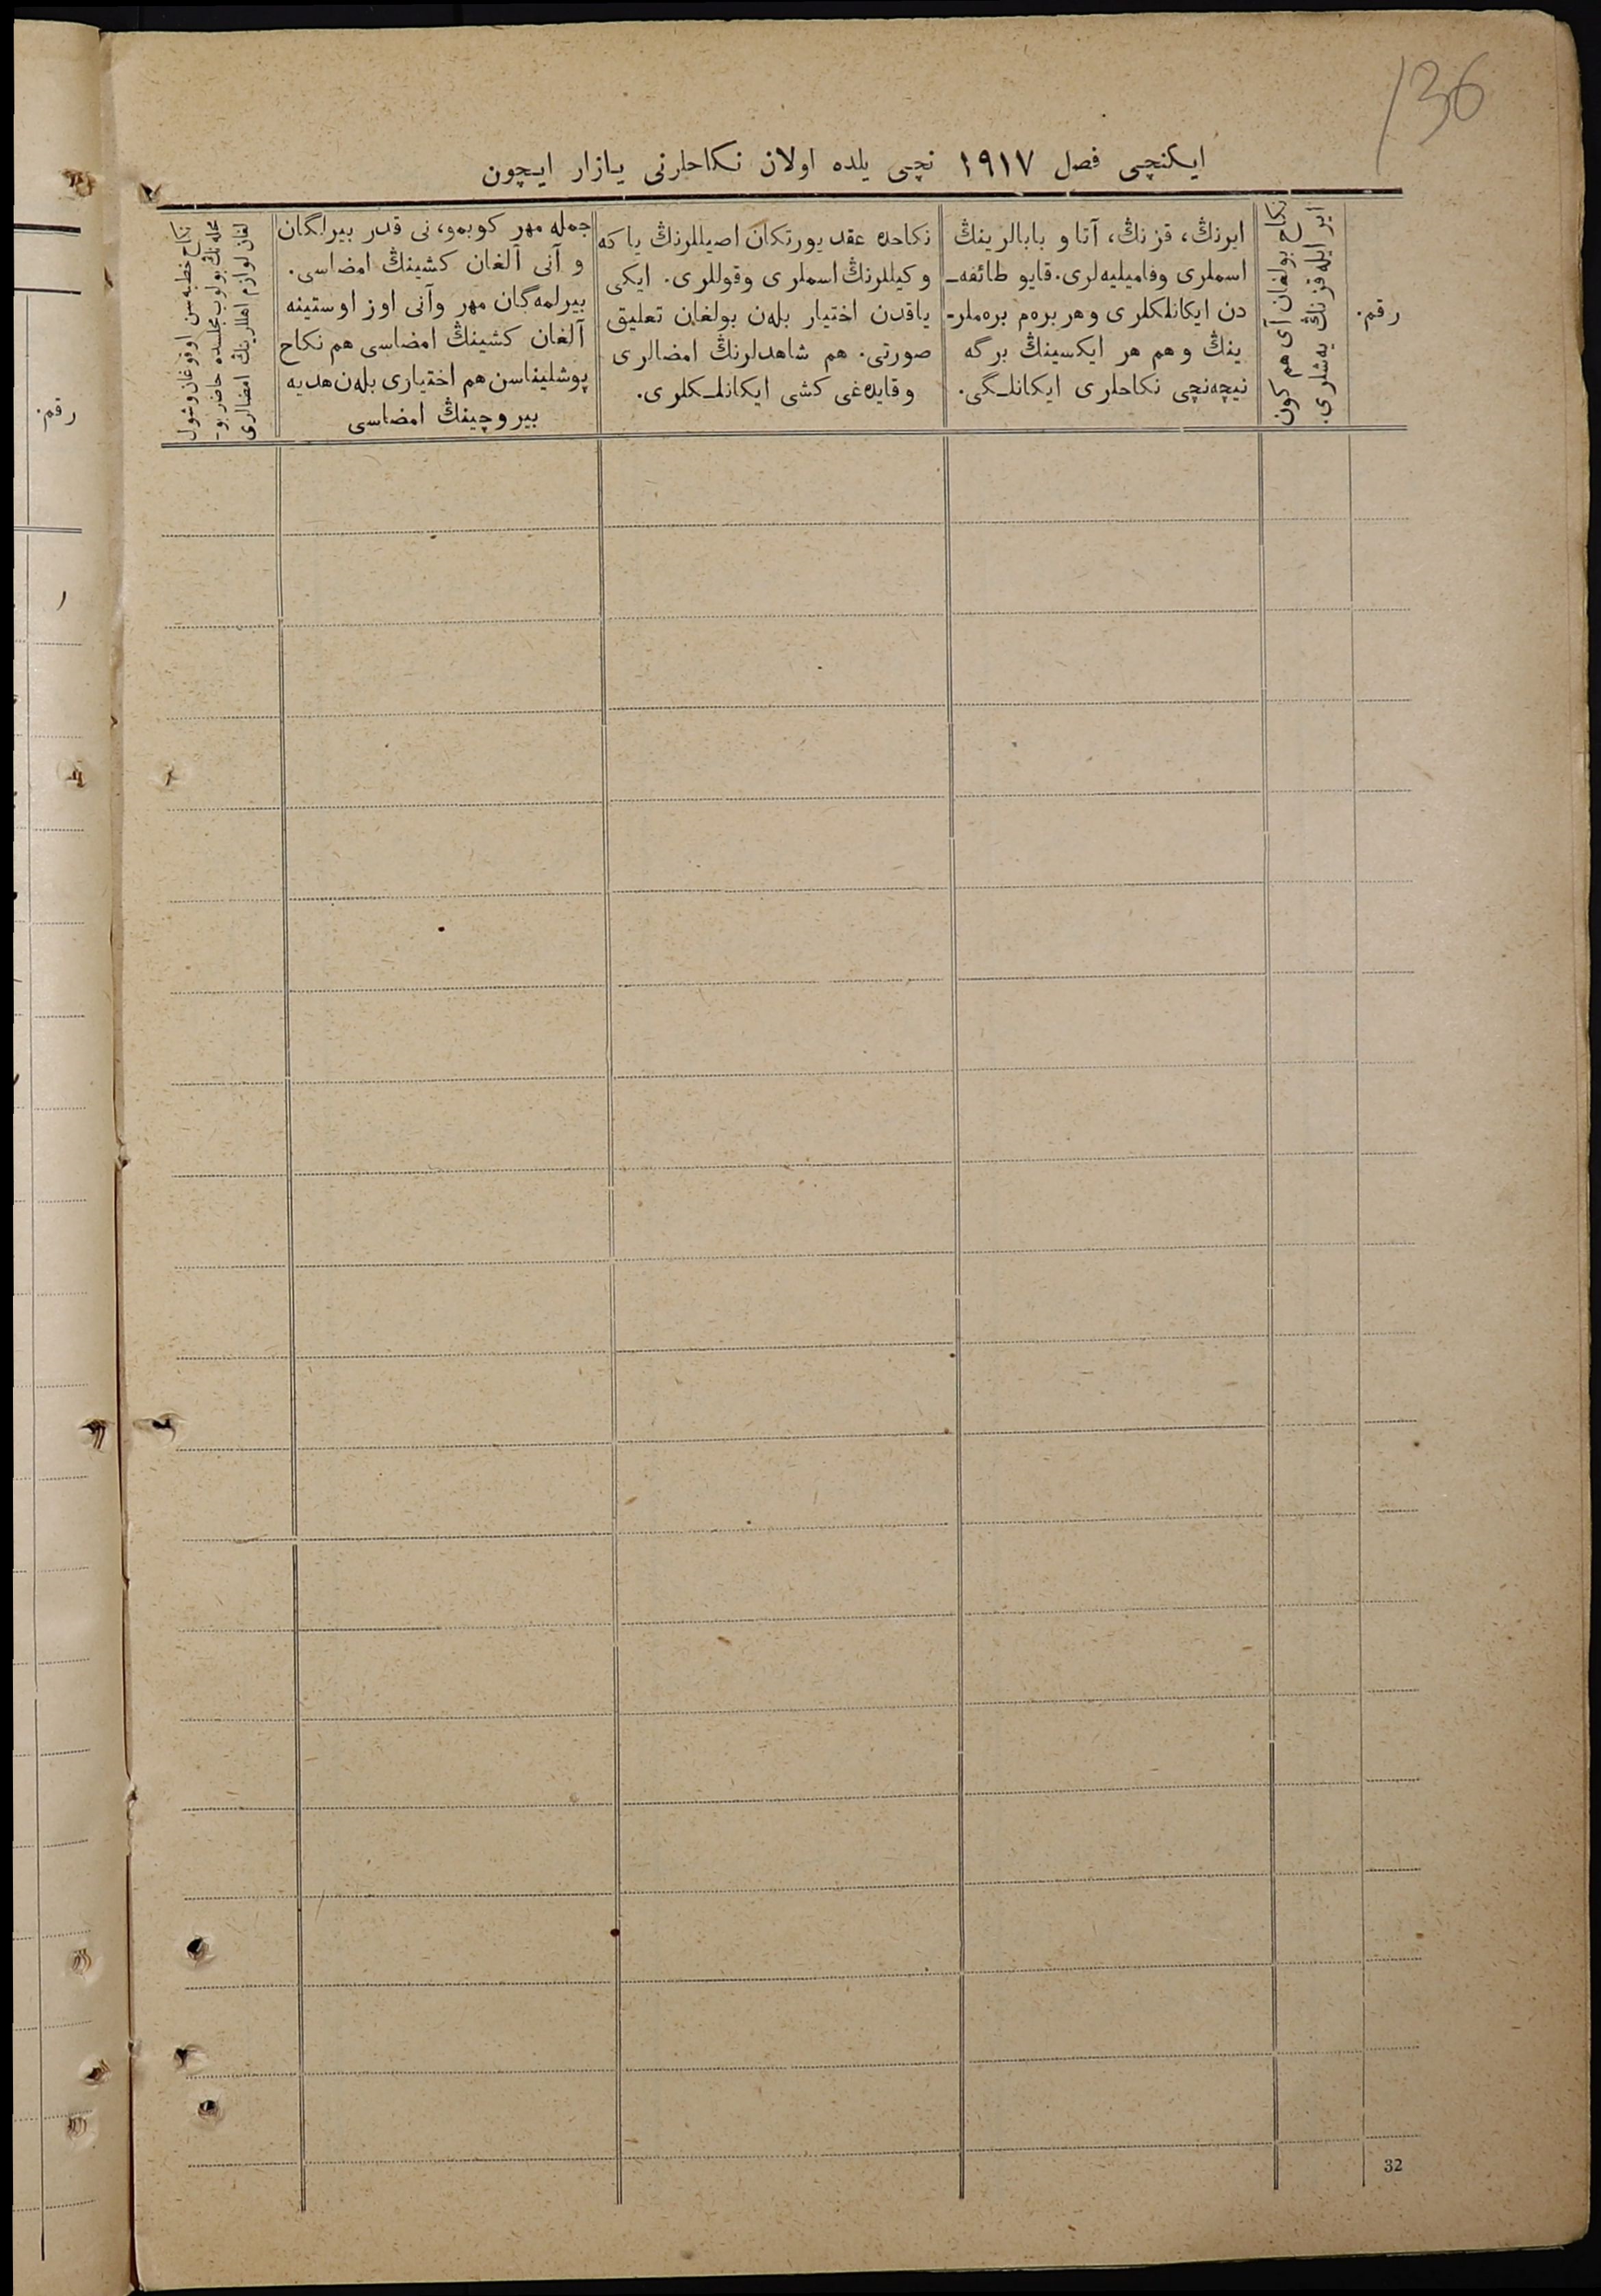 136
ایکنچی فصل ١٩١٧ نچی یلده اولان نکاحلرنی یازار ایچون
رقم.
نکاح بولغان آی هم کون
ایر ایله قزنڭ یه‌شلری.
ایرنڭ، قزنڭ، آتا و بابالرینڭ
اسملری وفامیلیه‌لری. قایو طائفه‌ـ
دن ایکانلکلری وهر بره‌م بره‌ملرـ
ینڭ و هم هر ایکسینڭ برگه
نیچه‌نچی نکاحلری ایکانلـگی.
نکاحده عقد یورتکان اصیللرنڭ یا که
وکیللرنڭ اسملری وقوللری. ایکی
یاقدن اختیار بله‌ن بولغان تعلیق
صورتی. هم شاهدلرنڭ امضالری
وقایده‌غی کشی ایکانلـکلری.
جمله مهر کوبمو، نی قدر بیرلگان
و آنی آلغان کشینڭ امضاسی.
بیرلمه‌گان مهر وآنی اوز اوستینه
آلغان کشینڭ امضاسی هم نکاح
پوشلیناسن هم اختیاری بله‌ن هدیه
بیروچینڭ امضاسی
نکاح خطبه‌سن اوقوغان وشول
محله‌نڭ بولوب مجلسده حاضر بوـ
لغان لوازم اهللارینڭ امضالری
رقم.
١
32